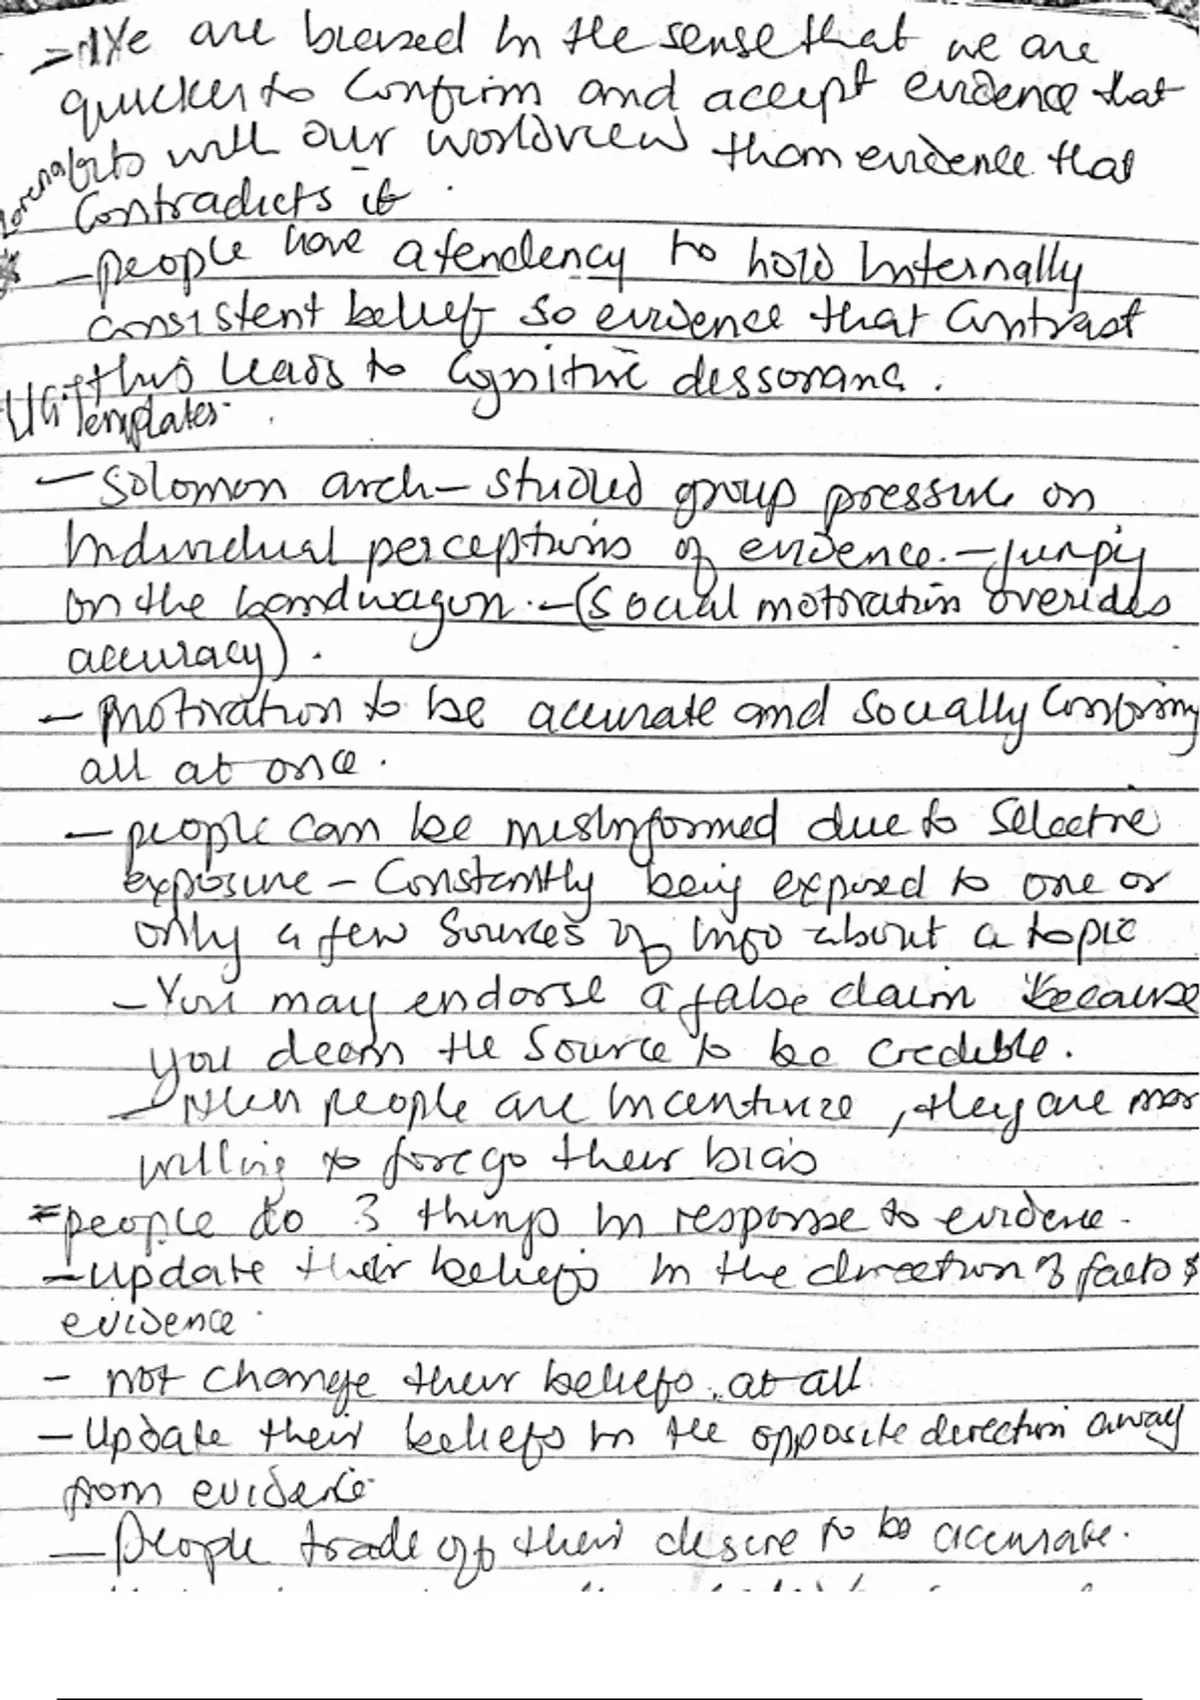 - We are biased in the sense that we are
quicker to confirm and accept evidence that
with our worldview than evidence that
contradicts it.
- people have a tendency to hold internally
consistent belief so evidence that contrast
this leads to cognitive dessonanc.
Templates-
- Solomon arch - studied group pressure on
individual perceptions of evidence. - jumpig
on the bandwagon. - (Social motivation overides
accuracy).
- motivation to be accurate and socially conforming
all at once.
- people can be misinformed due to selective
exposure - Constantly being exposed to one or
only a few sources of info about a topic
- You may endorse a false claim because
you deem the source to be credible.
- When people are incentivize, they are more
willing to forego their bias
* people do 3 things in response to evidence.
- Update their beliefs in the direction of facts &
evidence.
- not change their beliefs at all
- Update their beliefs in the opposite direction away
from evidence
- People trade off their desire to be accurate.